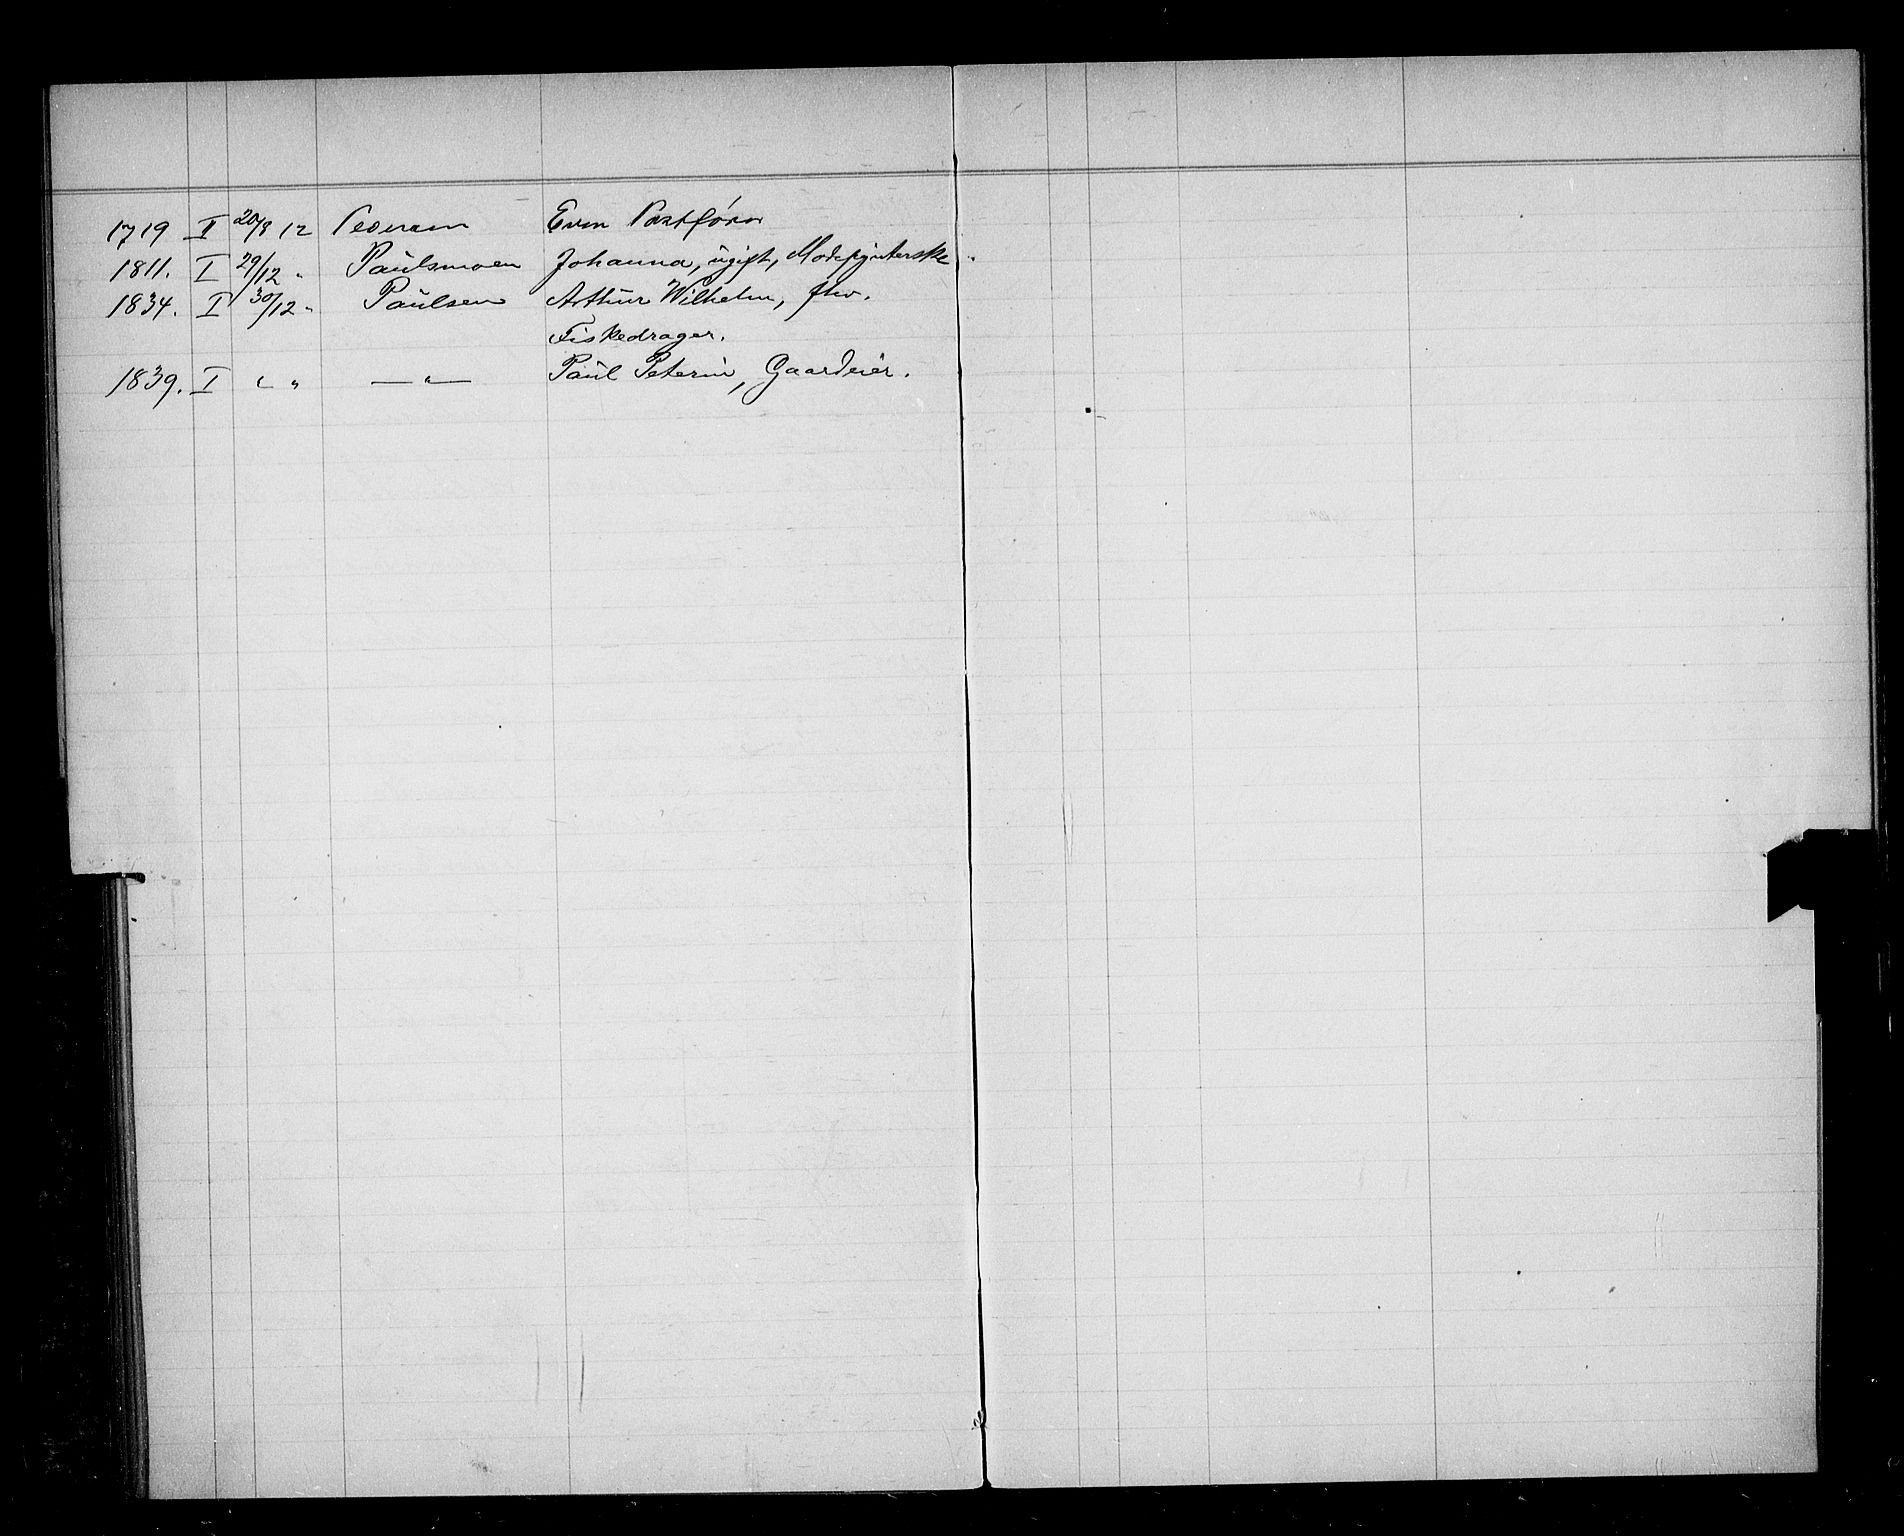 1719 II 20/8 12 Pedersen Even Postfører
1811. I 29/12 " Paulsmoen Johanna, ugift, Modepynterske.
1834. I 30/12 " Paulsen Arthur Wilhelm, fhv.
Fiskedrager.
1839. I " " —"— Paul Peterin, Gaardeier.